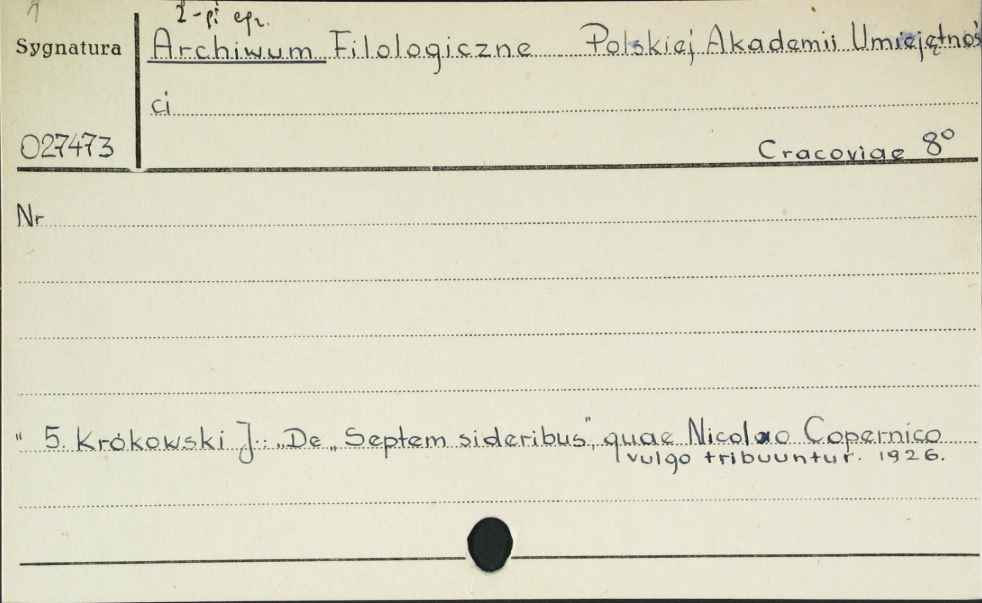 2-gi egz.
Sygnatura
Archiwum Filologiczne Polskiej Akademii Umiejętnoś
ci
027473
Cracoviae 8°
Nr
" 5. Krókowski J.: „De „Septem sideribus", quae Nicolao Copernico
vulgo tribuuntur. 1926.